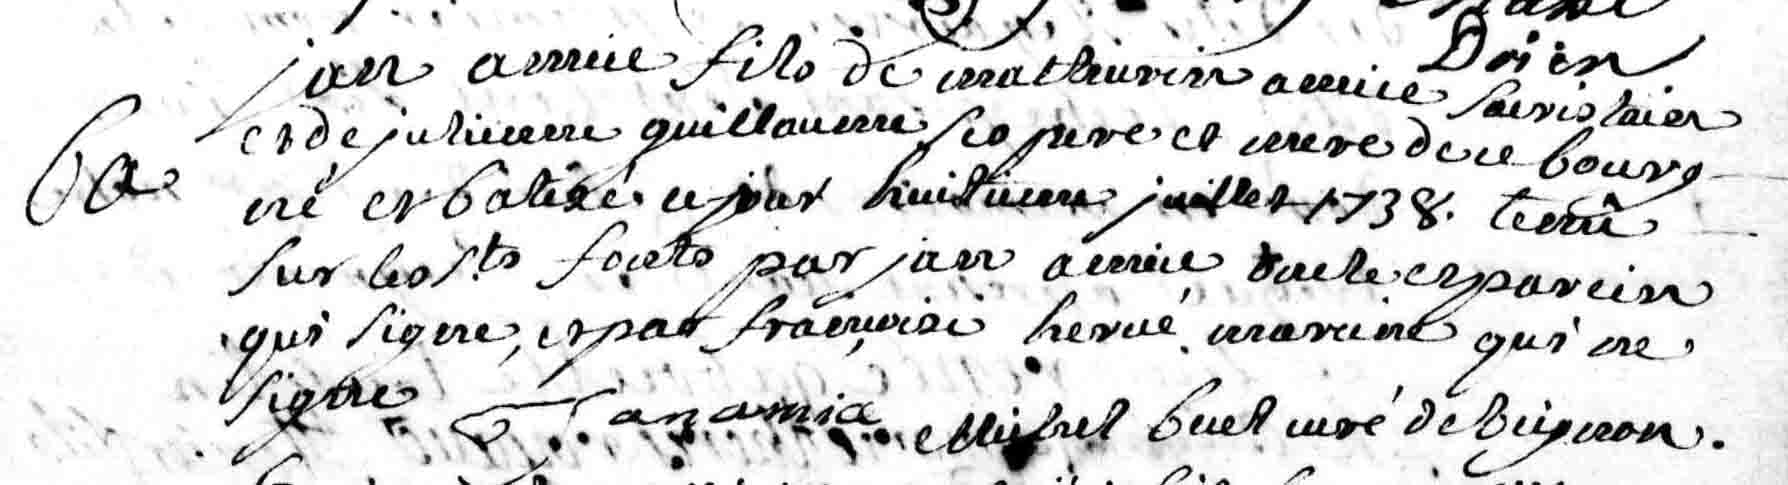 Doien
jan amice fils de mathurin amice sacristain
et de julienne guillaume ses pere et mere de ce bourg
Ba
né et batisé ce jour huitieme juillet 1738. tenu
sur les sts fonts par jan amice oncle et parein
qui signe, et par françoise hervé mareine qui ne
signe
Janamice Michel buet curé de bignon.